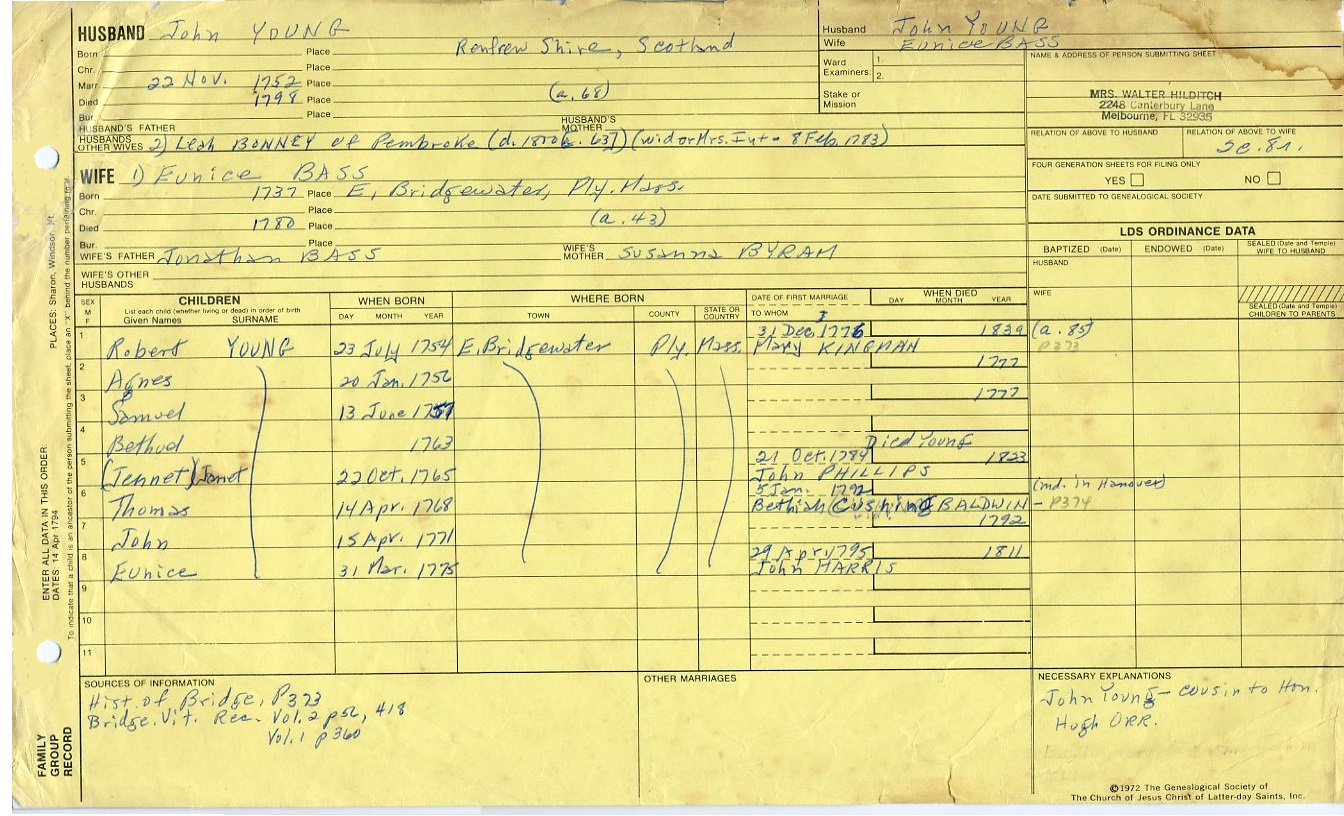 HUSBAND John YOUNG
Born Place Renfrew Shire, Scotland
Chr. Place
Marr. 22 Nov. 1752 Place
Died 1798 Place (a. 68)
Bur. Place
HUSBAND'S FATHER HUSBAND'S MOTHER
HUSBANDS OTHER WIVES 2) Leah BONNEY of Pembroke (d. 1810 . 63) (wid or Mrs. Int - 8 Feb. 1783)
WIFE 1) Eunice BASS
Born 1737 Place E. Bridgewater, Ply. Mass.
Chr. Place
Died 1780 Place (a. 43)
Bur. Place
WIFE'S FATHER Jonathan BASS WIFE'S MOTHER Susanna BYRAM
WIFE'S OTHER HUSBANDS
Husband John YOUNG
Wife Eunice BASS
Ward Examiners: 1.
2.
Stake or Mission
NAME & ADDRESS OF PERSON SUBMITTING SHEET
MRS. WALTER HILDITCH
2248 Canterbury Lane
Melbourne, FL 32935
RELATION OF ABOVE TO HUSBAND RELATION OF ABOVE TO WIFE
FOUR GENERATION SHEETS FOR FILING ONLY
YES NO
DATE SUBMITTED TO GENEALOGICAL SOCIETY
LDS ORDINANCE DATA
BAPTIZED (Date) ENDOWED (Date) SEALED (Date and Temple) WIFE TO HUSBAND
HUSBAND
WIFE
SEALED (Date and Temple) CHILDREN TO PARENTS
SEX M F CHILDREN WHEN BORN WHERE BORN DATE OF FIRST MARRIAGE WHEN DIED
List each child (whether living or dead) in order of birth
Given Names SURNAME DAY MONTH YEAR TOWN COUNTY STATE OR COUNTRY TO WHOM DAY MONTH YEAR
1 Robert YOUNG 23 July 1754 E. Bridgewater Ply. Mass. 31 Dec 1776 1839 (a. 85)
Mary KINGMAN P373
2 Agnes 20 Jan. 1756 1777
3 Samuel 13 June 1757 1777
4 Bethud 1763 Died Young
5 (Jennet) Janet 22 Oct. 1765 21 Oct. 1784 1823
John PHILLIPS
6 Thomas 14 Apr. 1768 5 Jan. 1792 (md. in Hanover)
Bethiah (Cushing) BALDWIN - P374
7 John 15 Apr. 1771 1792
8 Eunice 31 Mar. 1775 29 Apr. 1795 1811
John HARRIS
9
10
11
SOURCES OF INFORMATION
Hist. of Bridge, P373
Bridge. Vit. Rec. Vol. 2 p56, 418
Vol. 1 p360
OTHER MARRIAGES
NECESSARY EXPLANATIONS
John Young - cousin to Hon.
Hugh ORR.
©1972 The Genealogical Society of
The Church of Jesus Christ of Latter-day Saints, Inc.
FAMILY GROUP RECORD
ENTER ALL DATA IN THIS ORDER:
DATES: 14 Apr 1794 PLACES: Sharon, Windsor, Vt.
To indicate that a child is an ancestor of the person submitting the sheet, place an "X" behind the number pertaining to